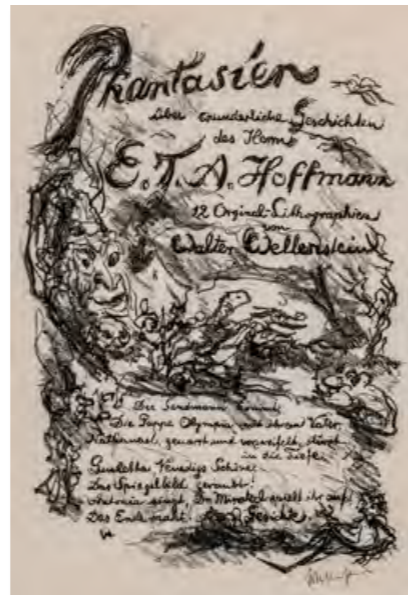 Phantasien
über wunderliche Geschichten
des Herrn
E. T. A. Hoffmann
12 Original-Lithographien
von
Walter Wellenstein
Der Sandmann kommt
Die Puppe Olympia mit ihrem Vater,
Nathanael, genarrt und verzweifelt, stürzt
in die Tiefe
Giulietta Venedigs Schöne
Das Spiegelbild geraubt!
Antonia singt, Dr Mirakel spielt ihr auf
Das Ende naht!